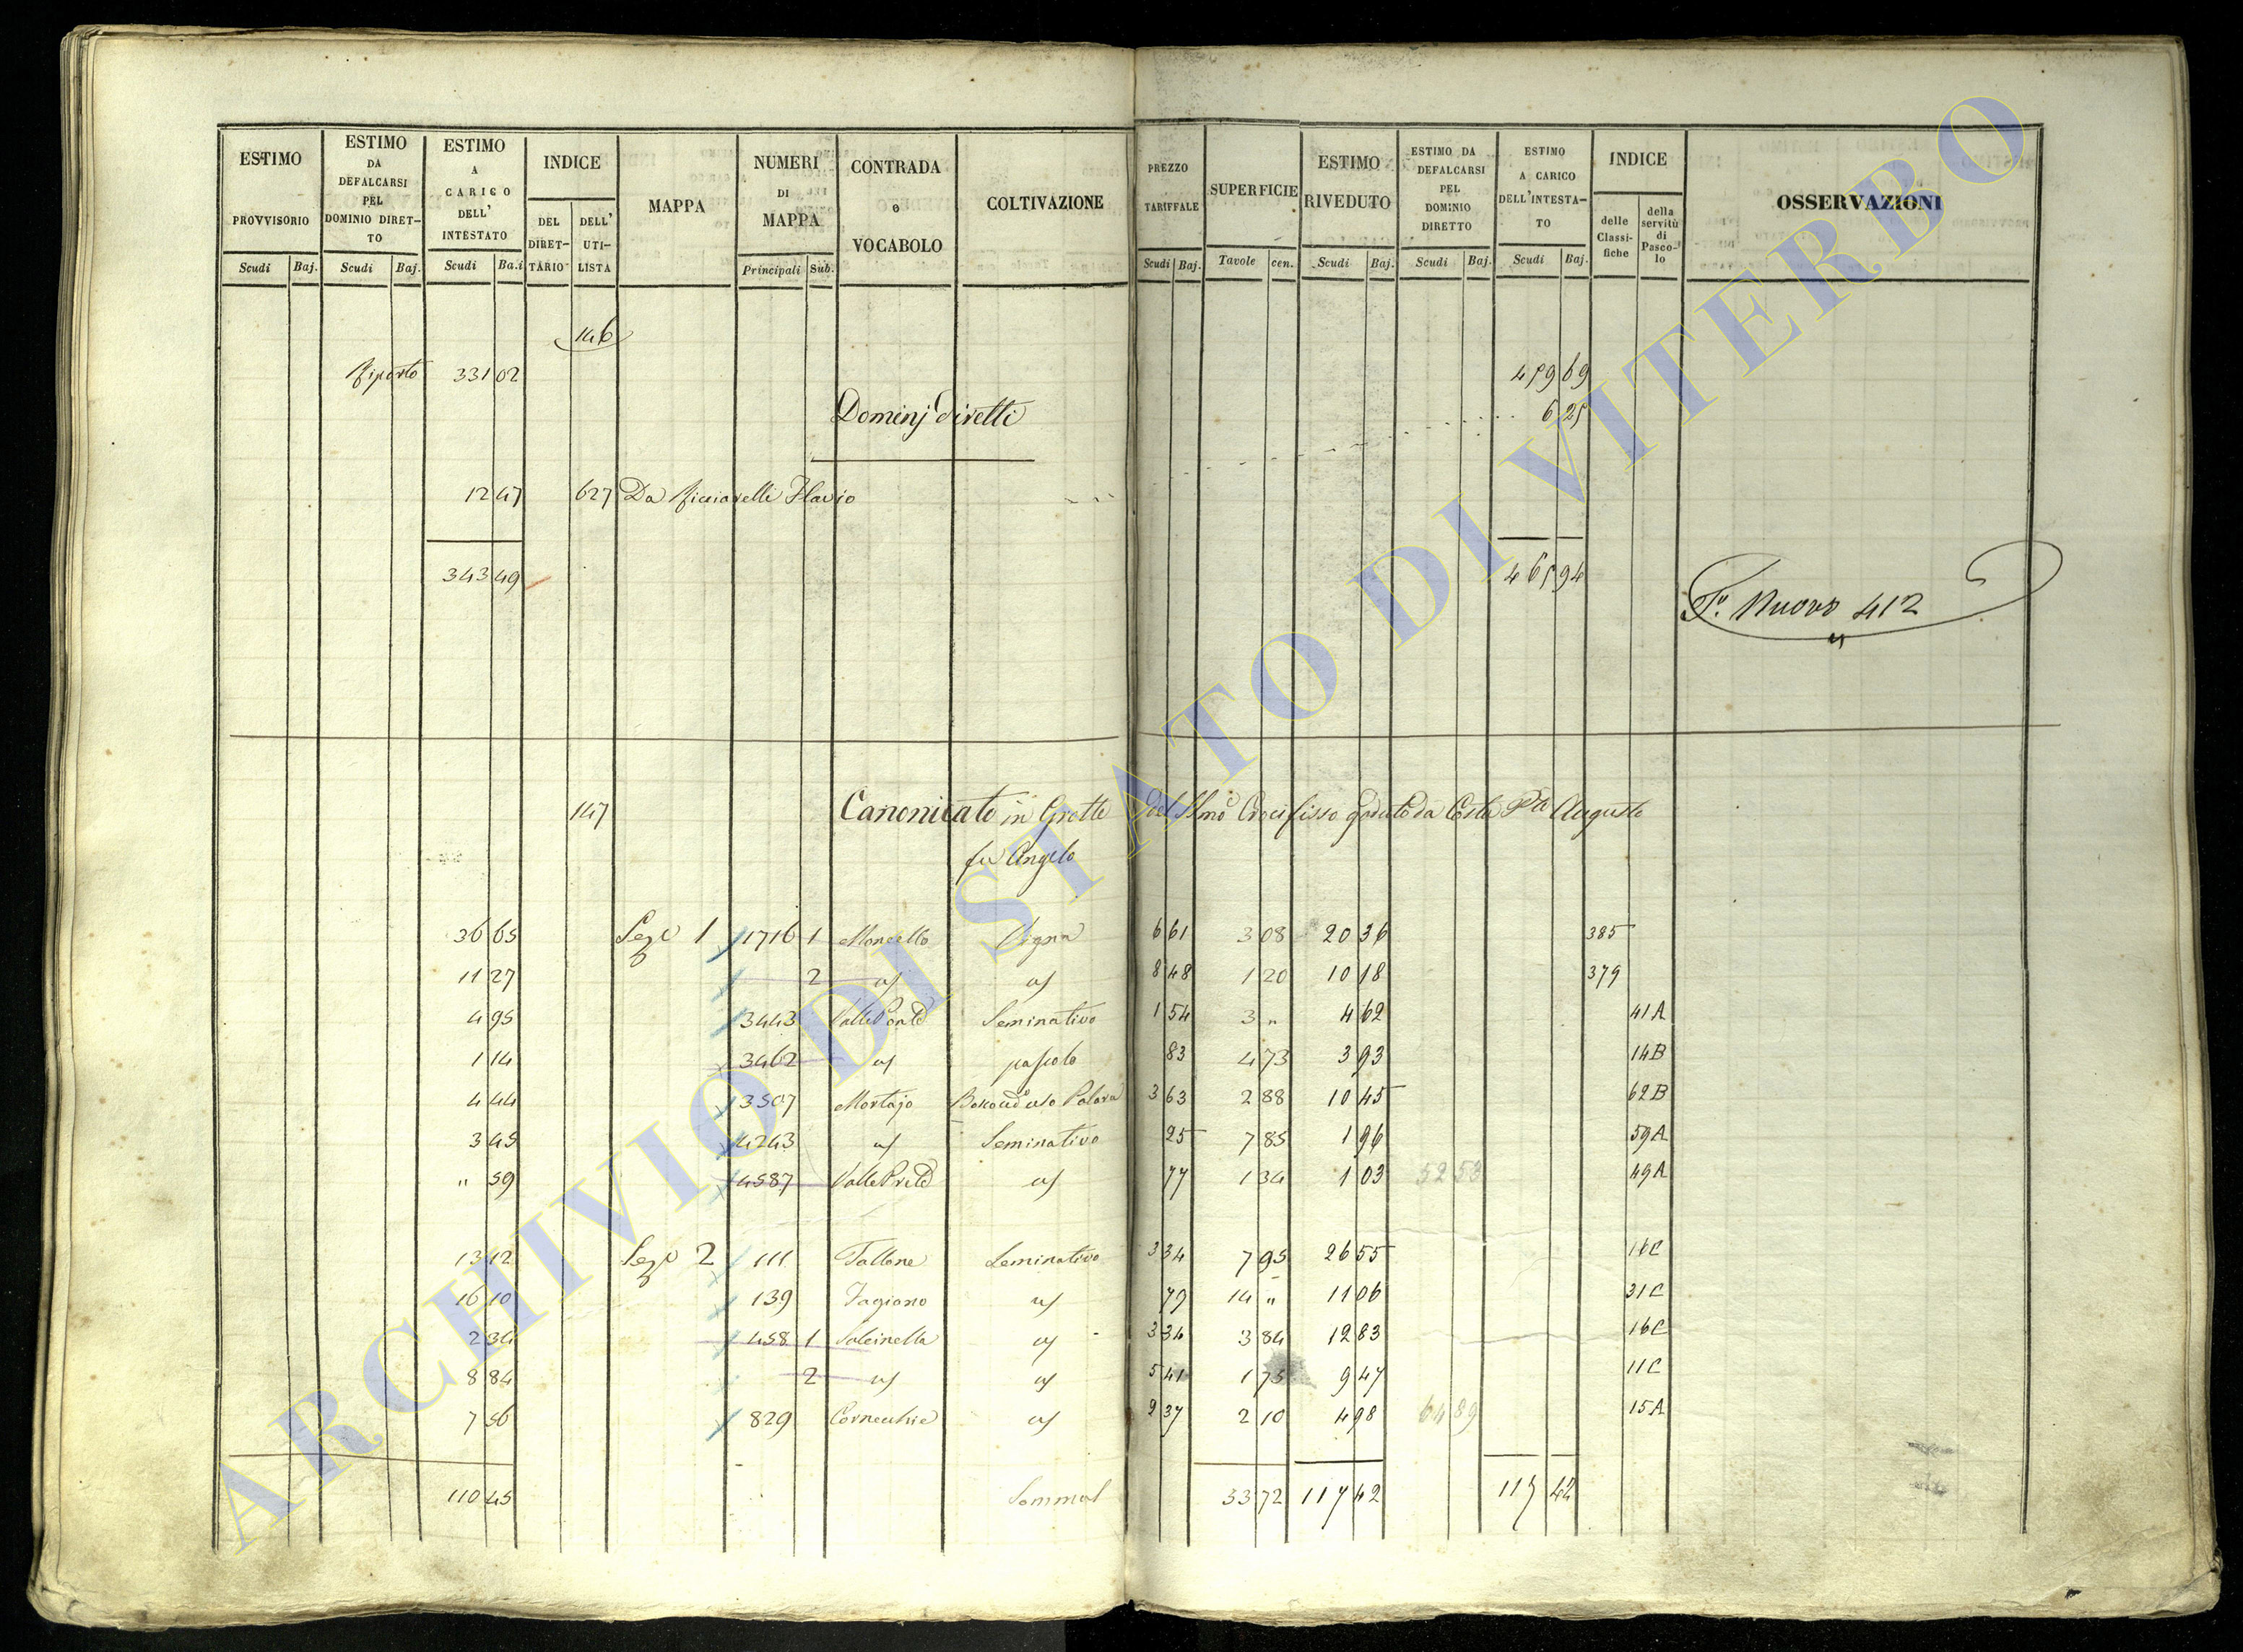 ESTIMO PROVVISORIO Scudi Baj.
ESTIMO DA DEFALCARSI PEL DOMINIO DIRETTO Scudi Baj.
ESTIMO A CARICO DELL' INTESTATO Scudi Ba.i
INDICE DEL DIRETTARIO DELL' UTILISTA
MAPPA
NUMERI DI MAPPA Principali Sub.
CONTRADA o VOCABOLO
COLTIVAZIONE
PREZZO TARIFFALE Scudi Baj.
SUPERFICIE Tavole cen.
ESTIMO RIVEDUTO Scudi Baj.
ESTIMO DA DEFALCARSI PEL DOMINIO DIRETTO Scudi Baj.
ESTIMO A CARICO DELL'INTESTATO Scudi Baj.
INDICE delle Classifiche della servitù di Pascolo
OSSERVAZIONI
146
Riporto 331 02 459 69
Dominj diretti 6 25
12 47 627 Da Ricciarelli Flavio
343 49 465 94
Nuovo 412
147 Canonicato in Grotte del SSmo Crocifisso goduto da Costa Augusto
fu Angelo
36 65 Sez.e 1 1716 1 Moncello Vigna 6 61 3 08 20 36 385
11 27 2 " " 8 48 1 20 10 18 379
4 95 3443 Seminativo 1 54 3 " 4 62 41A
1 14 3462 " pascolo 83 4 73 3 93 14B
4 44 3507 Mortajo 3 63 2 88 10 45 62B
3 45 4243 " Seminativo 25 7 85 1 96 59A
" 59 4587 " 77 1 34 1 03 52 53 49A
13 12 Sez.e 2 111 Seminativo 3 34 7 95 26 55 16C
16 10 139 " 79 14 " 11 06 31C
2 34 458 1 " 3 34 3 84 12 83 16C
8 84 2 " " 5 41 1 75 9 47 11C
7 56 829 Cornecchie " 2 37 2 10 4 98 64 89 15A
110 45 33 72 117 42 117 42
ARCHIVIO DI STATO DI VITERBO